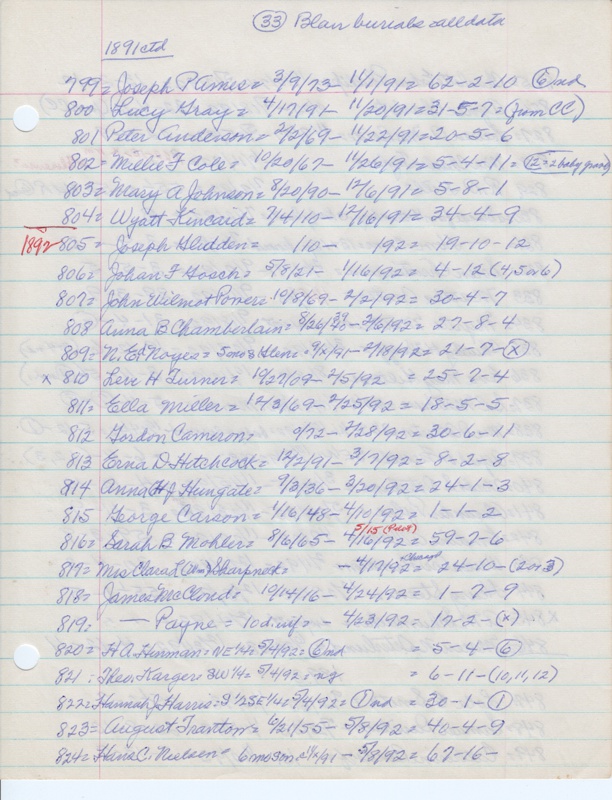 (33) Blair burials all data
1891 ctd
799 = Joseph P Ames = 3/9/73 - 11/1/91 = 62-2-10 (6) nd
800 Lucy Gray = 4/17/91 - 11/20/91 = 31-5-7 = (from CC)
801 Peter Anderson = 2/2/69 - 11/22/91 = 20-5-6
802 = Millie F Cole = 10/20/67 - 11/26/91 = 5-4-11 = (12 = 2 baby graves)
803 = Mary A Johnson = 8/20/90 - 12/6/91 = 5-8-1
804 = Wyatt Kincaid = 7/4/10 - 12/16/91 = 34-4-9
1892 805 = Joseph Glidden = 110 - 192 = 19-10-12
806 = Johan F Hosch = 5/8/21 - 1/16/92 = 4-12 (4,5 or 6)
807 = John Wilmot Power = 10/8/69 - 2/2/92 = 30-4-7
808 Anna B Chamberlain = 8/26/ 39 - 2/6/92 = 27-8-4
809 = N. Ed Noyes = - 2/18/92 = 21-7-(x)
x 810 Levi H Turner = 10/27/09 - 2/5/92 = 25-7-4
811 = Ella Miller = 12/3/69 - 2/25/92 = 18-5-5
812 Gordon Cameron = 9/72 - 2/28/92 = 30-6-11
813 Erna D Hitchcock = 12/2/91 - 3/17/92 = 8-2-8
814 Anna H J Hungate = 9/3/36 - 3/20/92 = 24-1-3
815 George Carson = 1/16/48 - 4/10/92 = 1-1-2
5/15 (Pilot)
816 = Sarah B Mohler = 8/6/65 - 4/16/92 = 59-7-6
817 = Mrs Clara L Sharpnack = - 4/17/92 = 24-10-(2 or 3)
818 = James McCloud = 10/14/16 - 4/24/92 = 1-7-9
819 = — Payne = 10 d. inf = - 4/23/92 = 17-2-(x)
820 = H A Herman = NE 1/4 = 5/4/92 = (6) nd = 5-4-(6)
821 = Theo. Karger = SW 1/4 = 5/4/92 = = 6-11-(10,11,12)
822 = Hannah J Harris = S 1/2 SE 1/4 = 5/4/92 = (1) nd = 30-1-(1)
823 = August Tranton = 6/21/55 - 5/8/92 = 40-4-9
824 = Hans C. Nielsen = 6 mo son = - 5/8/92 = 67-16-